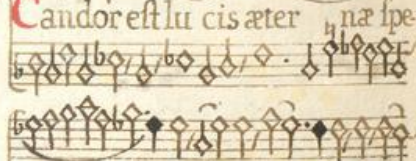 Candor est lu cis æter næ spe